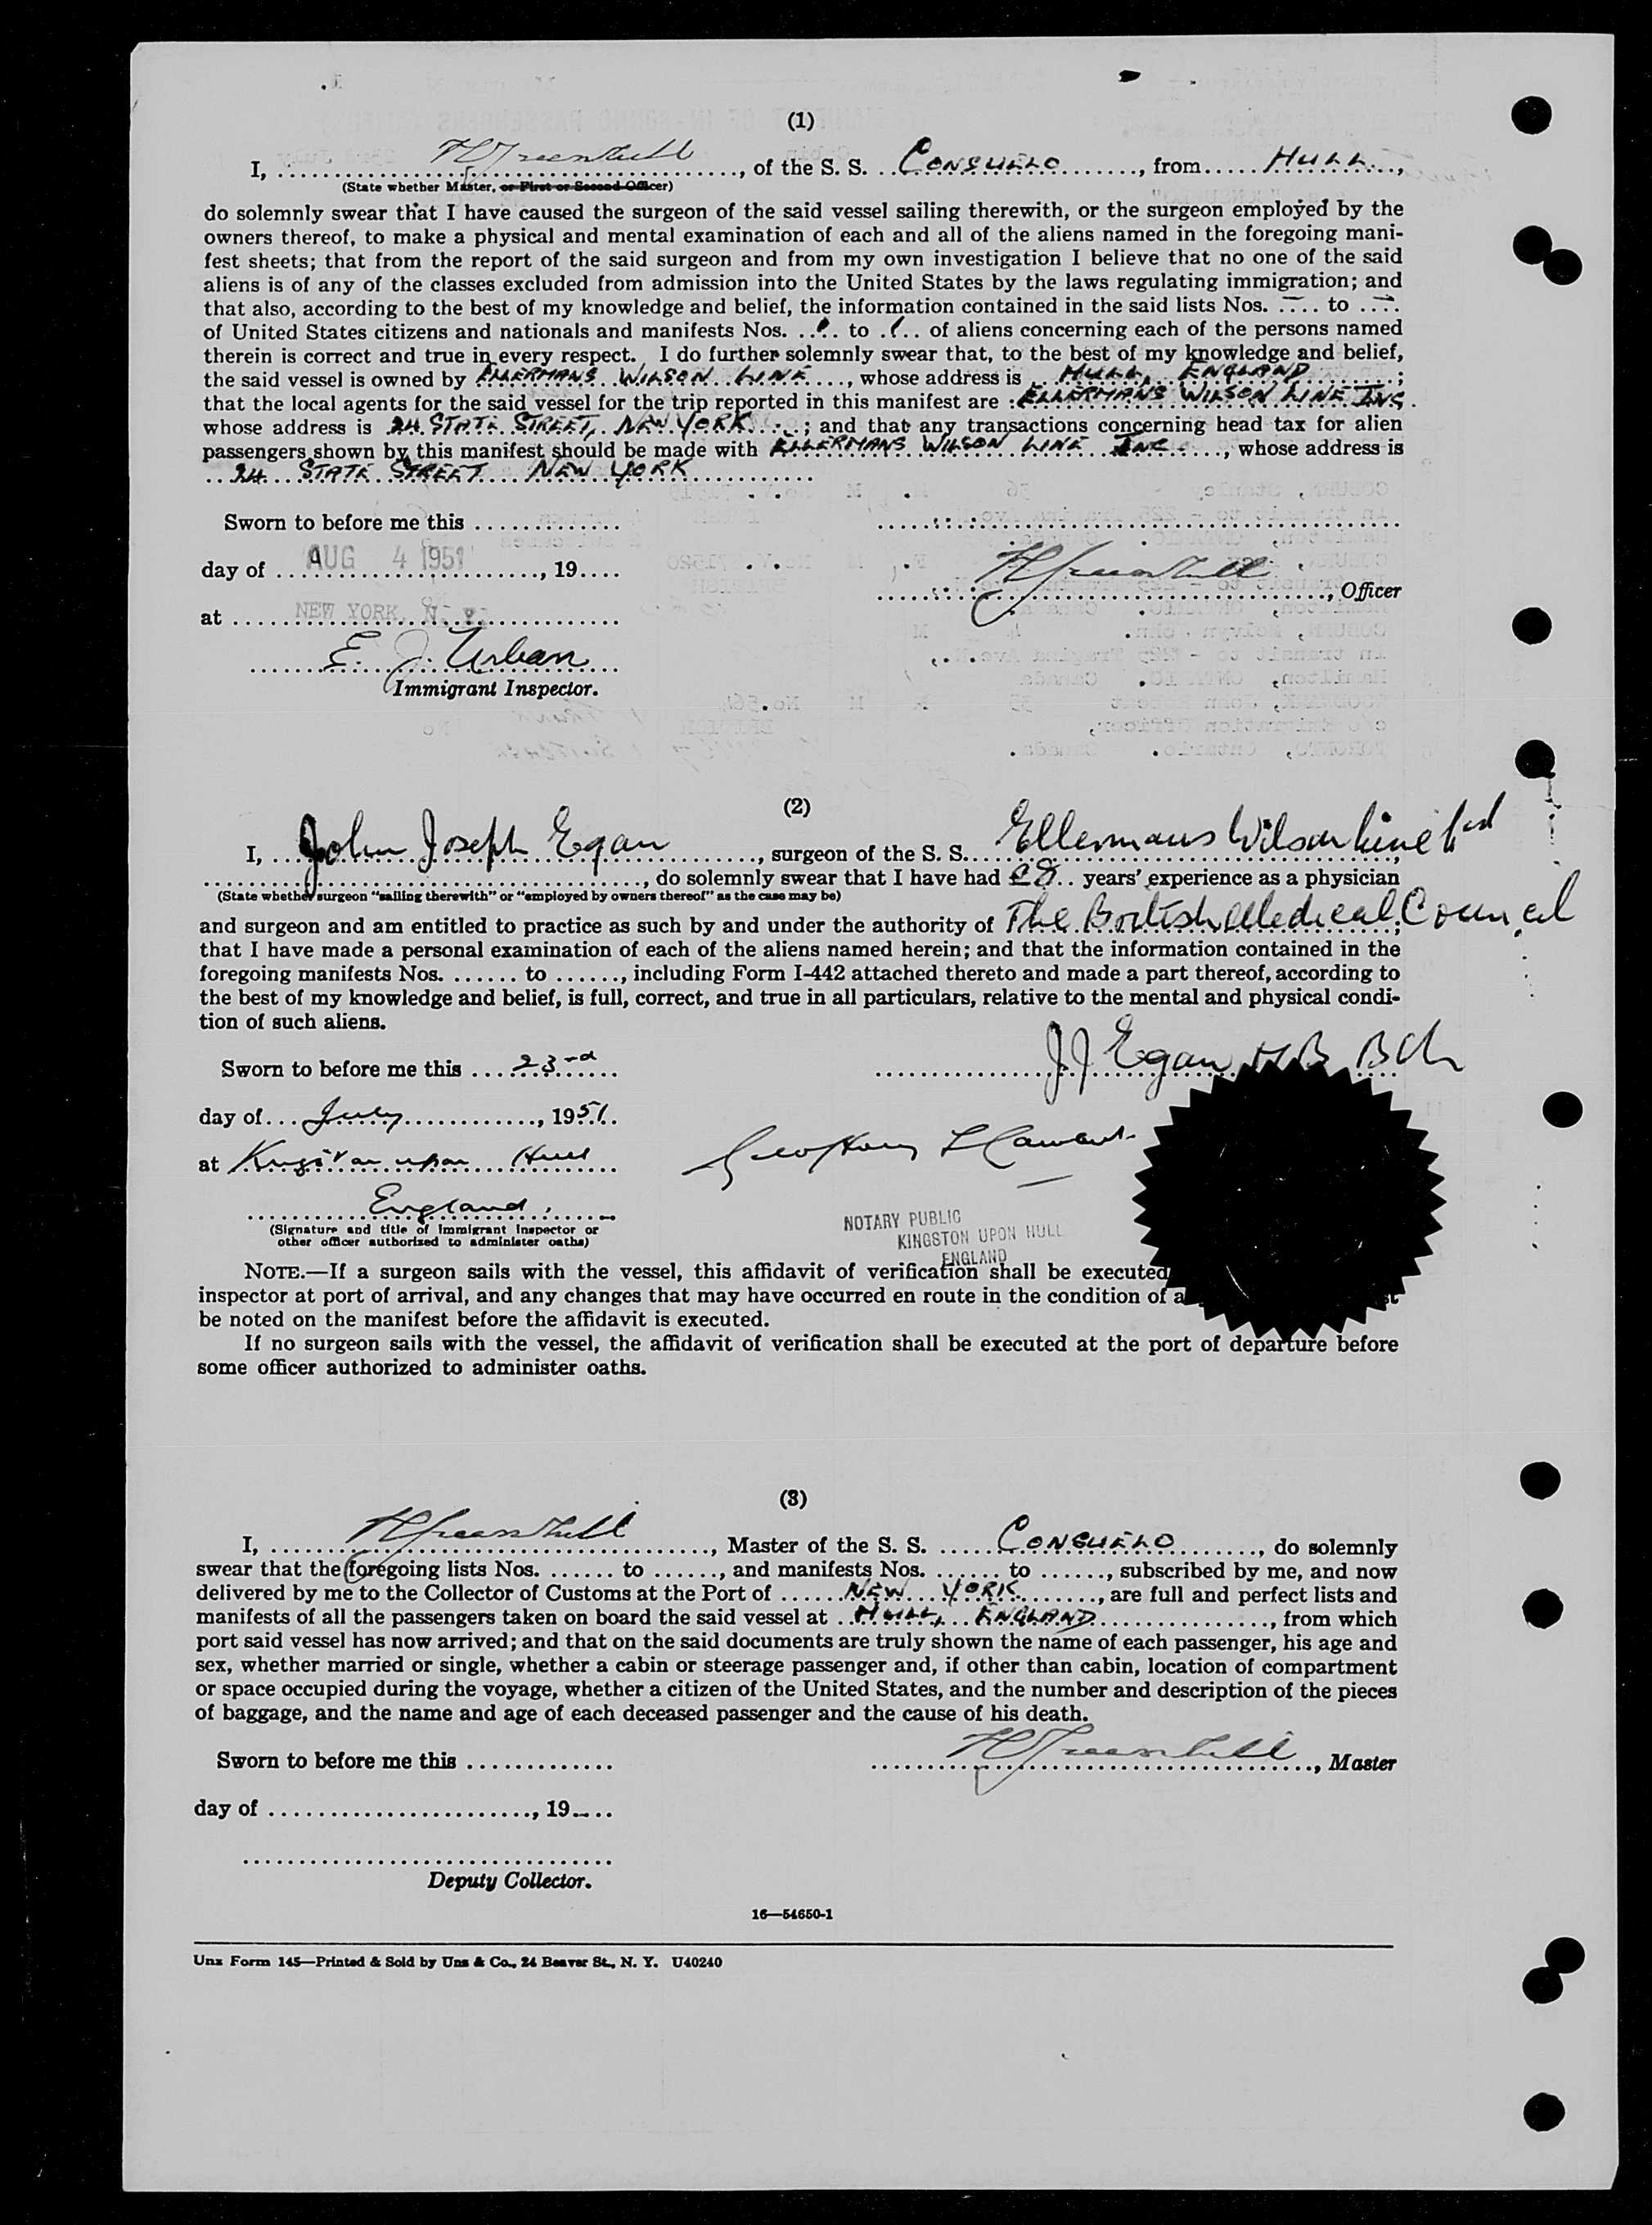 (1)
I, H Greenhill, of the S. S. CONSUELO, from HULL,
(State whether Master, or First or Second Officer)
do solemnly swear that I have caused the surgeon of the said vessel sailing therewith, or the surgeon employed by the
owners thereof, to make a physical and mental examination of each and all of the aliens named in the foregoing mani-
fest sheets; that from the report of the said surgeon and from my own investigation I believe that no one of the said
aliens is of any of the classes excluded from admission into the United States by the laws regulating immigration; and
that also, according to the best of my knowledge and belief, the information contained in the said lists Nos. — to —
of United States citizens and nationals and manifests Nos. 1 to 1 of aliens concerning each of the persons named
therein is correct and true in every respect. I do further solemnly swear that, to the best of my knowledge and belief,
the said vessel is owned by ELLERMANS WILSON LINE, whose address is HULL, ENGLAND;
that the local agents for the said vessel for the trip reported in this manifest are ELLERMANS WILSON LINE INC.
whose address is 24 STATE STREET, NEW YORK; and that any transactions concerning head tax for alien
passengers shown by this manifest should be made with ELLERMANS WILSON LINE INC, whose address is
24 STATE STREET NEW YORK
Sworn to before me this
day of AUG 4 1951, 19
H Greenhill, Officer
at NEW YORK, N. Y.
E. J. Urban
Immigrant Inspector.
(2)
I, John Joseph Egan, surgeon of the S. S. Ellermans Wilson Line Ltd,
, do solemnly swear that I have had 28 years' experience as a physician
(State whether surgeon "sailing therewith" or "employed by owners thereof" as the case may be)
and surgeon and am entitled to practice as such by and under the authority of The British Medical Council;
that I have made a personal examination of each of the aliens named herein; and that the information contained in the
foregoing manifests Nos. to , including Form I-442 attached thereto and made a part thereof, according to
the best of my knowledge and belief, is full, correct, and true in all particulars, relative to the mental and physical condi-
tion of such aliens.
Sworn to before me this 23rd
J J Egan MB BCh
day of July, 1951
at Kingston upon Hull
England.
(Signature and title of Immigrant Inspector or
other officer authorized to administer oaths)
NOTARY PUBLIC
KINGSTON UPON HULL
ENGLAND
NOTE.—If a surgeon sails with the vessel, this affidavit of verification shall be executed
inspector at port of arrival, and any changes that may have occurred en route in the condition of
be noted on the manifest before the affidavit is executed.
If no surgeon sails with the vessel, the affidavit of verification shall be executed at the port of departure before
some officer authorized to administer oaths.
(3)
I, H Greenhill, Master of the S. S. CONSUELO, do solemnly
swear that the foregoing lists Nos. to , and manifests Nos. to , subscribed by me, and now
delivered by me to the Collector of Customs at the Port of NEW YORK, are full and perfect lists and
manifests of all the passengers taken on board the said vessel at HULL, ENGLAND, from which
port said vessel has now arrived; and that on the said documents are truly shown the name of each passenger, his age and
sex, whether married or single, whether a cabin or steerage passenger and, if other than cabin, location of compartment
or space occupied during the voyage, whether a citizen of the United States, and the number and description of the pieces
of baggage, and the name and age of each deceased passenger and the cause of his death.
Sworn to before me this
H Greenhill, Master
day of , 19
Deputy Collector.
16—54650-1
Unz Form 145—Printed & Sold by Unz & Co., 24 Beaver St., N. Y. U40240